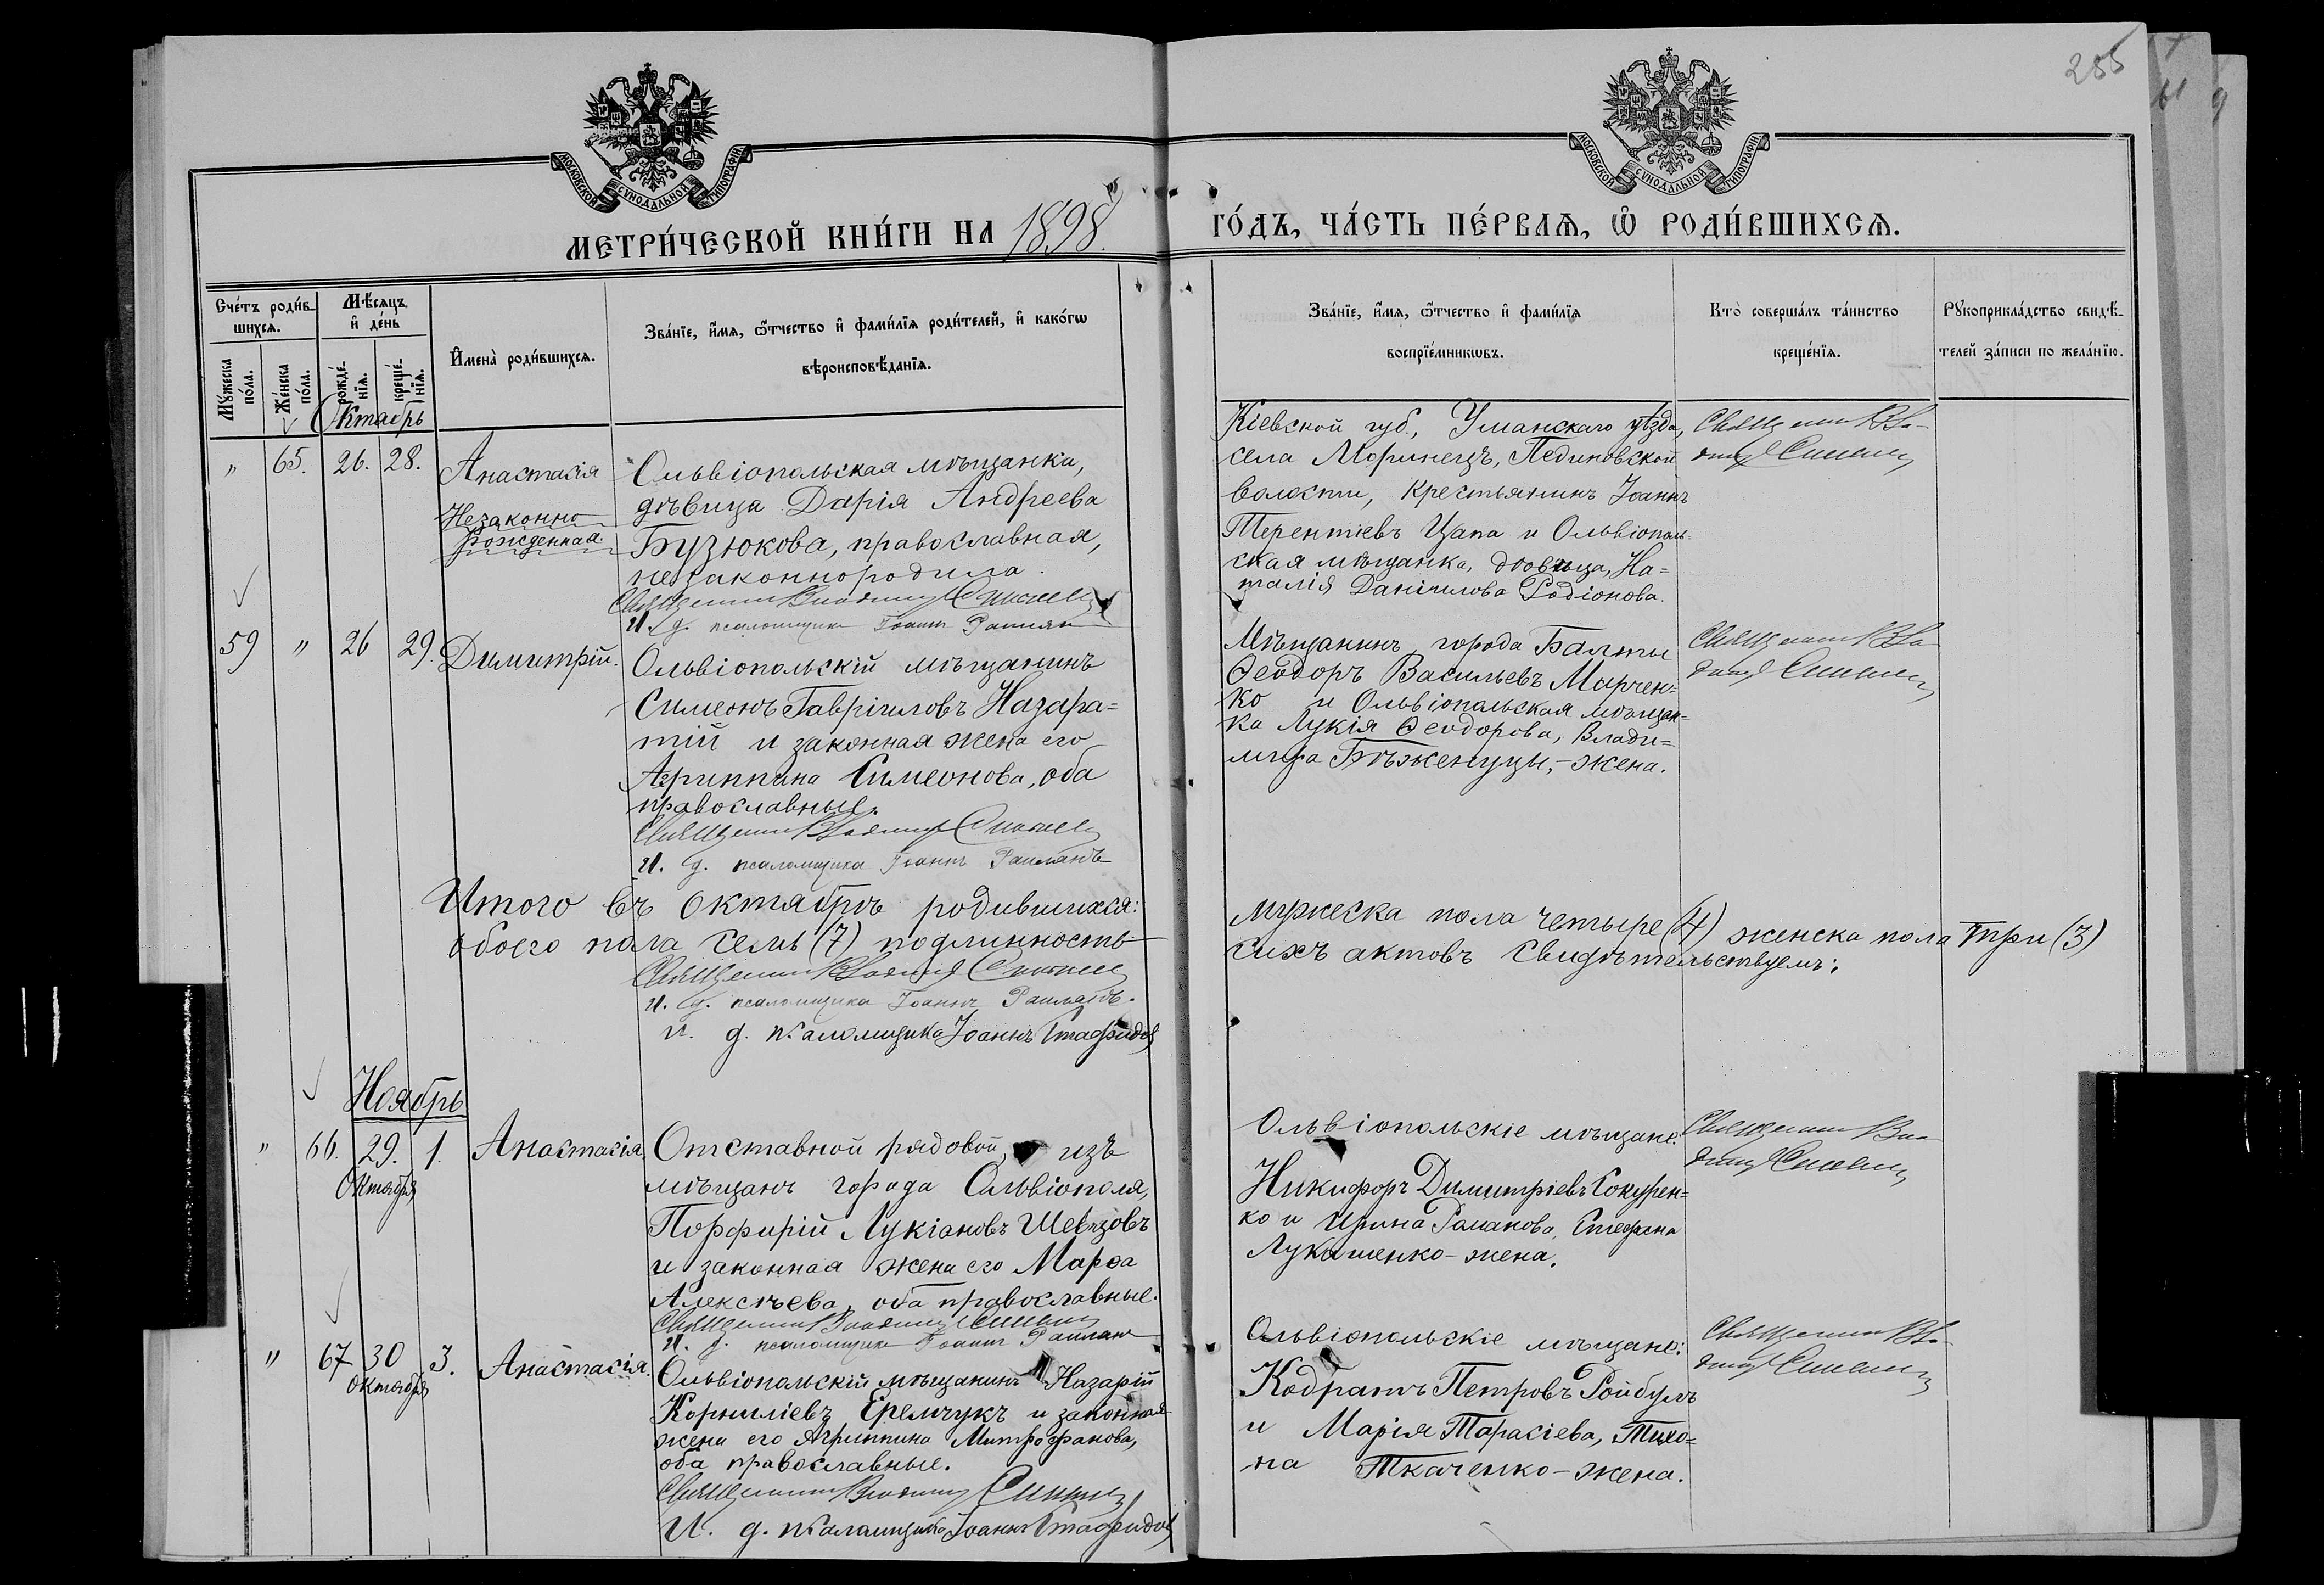 255
МОСКОВСКОЙ СѴНОДАЛЬНОЙ ТИПОГРАФІИ
МОСКОВСКОЙ СѴНОДАЛЬНОЙ ТИПОГРАФІИ
МЕТРИ́ЧЕСКОЙ КНИ́ГИ НА 1898. ГО́ДЪ, ЧА́СТЬ ПЕ́РВАѦ, Ѡ҆ РОДИ́ВШИХСѦ.
Сче́тъ роди́в-
шихсѧ.
Мѣ́сѧцъ
и҆ де́нь
Мꙋ́жеска
по́ла.
Же́нска
по́ла.
рожде́-
нїѧ.
креще́-
нїѧ.
И҆мена̀ роди́вшихсѧ.
Зва́нїе, и҆́мѧ, ѻ҆́тчество и҆ фами́лїѧ роди́телей, и҆ како́гѡ
вѣроисповѣ́данїѧ.
Зва́нїе, и҆́мѧ, ѻ҆́тчество и҆ фами́лїѧ
воспрїе́мникѡвъ.
Кто̀ соверша́лъ та́инство
креще́нїѧ.
Рꙋкоприкла́дство свидѣ́-
телей за́писи по жела́нїю.
Октябрь
" 65. 26. 28.
Анастасія
Незаконно
рожденная
Ольвіопольская мѣщанка,
дѣвица Дарія Андреева
Бузюкова, православная,
незаконнородила.
Священникъ Владимір
И. д. псаломщика Іоаннъ
Кіевской губ., Уманскаго уѣзда,
села Моринецъ, Пединовской
волости, крестьянинъ Іоаннъ
Терентіевъ Цапа и Ольвіополь-
ская мѣщанка, дѣвица, На-
талія Даніилова Родіонова.
Священникъ Вла-
димір
59 " 26 29.
Димитрій.
Ольвіопольскій мѣщанинъ
Симеонъ Гавріиловъ Назара-
тій и законная жена его
Агриппина Симеонова, оба
православные.
Священникъ Владимір
И. д. псаломщика Іоаннъ
Мѣщанинъ города Балты
Ѳеодоръ Васильевъ Марчен-
ко и Ольвіопольская мѣщан-
ка Лукія Ѳеодорова, Влади-
міра Бѣженуцы,-жена.
Священникъ Вла-
димір
Итого въ октябрѣ родившихся: мужеска пола четыре (4) женска пола три (3)
обоего пола семь (7) подлинность сихъ актовъ свидѣтельствуемъ:
Священникъ Владимір
И. д. псаломщика Іоаннъ
И. д. псаломщика Іоаннъ Стафидов
Ноябрь
" 66. 29. 1.
Октября
Анастасія
Отставной рядовой, изъ
мѣщанъ города Ольвіополя,
Порфирій Лукіановъ Шевцовъ
и законная жена его Марѳа
Алексѣева, оба православные.
Священникъ Владимір
И. д. псаломщика Іоаннъ
Ольвіопольскіе мѣщане:
Никифоръ Димитріевъ Сокурен-
ко и Ирина Романова, Стефана
Лукашенко-жена.
Священникъ Вла-
димір
" 67 30 3.
Октября
Анастасія.
Ольвіопольскій мѣщанинъ Назарій
Корниліевъ Еремчукъ и законная
жена его Агриппина Митрофанова,
оба православные.
Священникъ Владимір
И. д. псаломщика Іоаннъ Стафидов
Ольвіопольскіе мѣщане:
Кодратъ Петровъ Ройбулъ
и Марія Тарасіева, Тихо-
на Ткаченко-жена.
Священникъ Вла-
димір